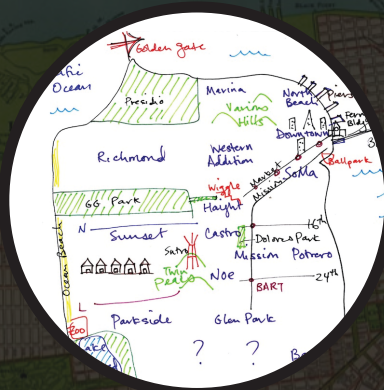 Golden Gate
Pacific
Ocean
Presidio
Marina
North
Beach
Piers
Various
Hills
Ferry
Bldg
Downtown
Richmond
Western
Addition
Market
Mission
SoMa
Ballpark
Wiggle
GG Park
Haight
N
Sunset
Castro
16th
Dolores Park
Sutro
Mission
Potrero
Twin
Peaks
Noe
24th
BART
Ocean Beach
L
Zoo
Parkside
Glen Park
Lake
?
?